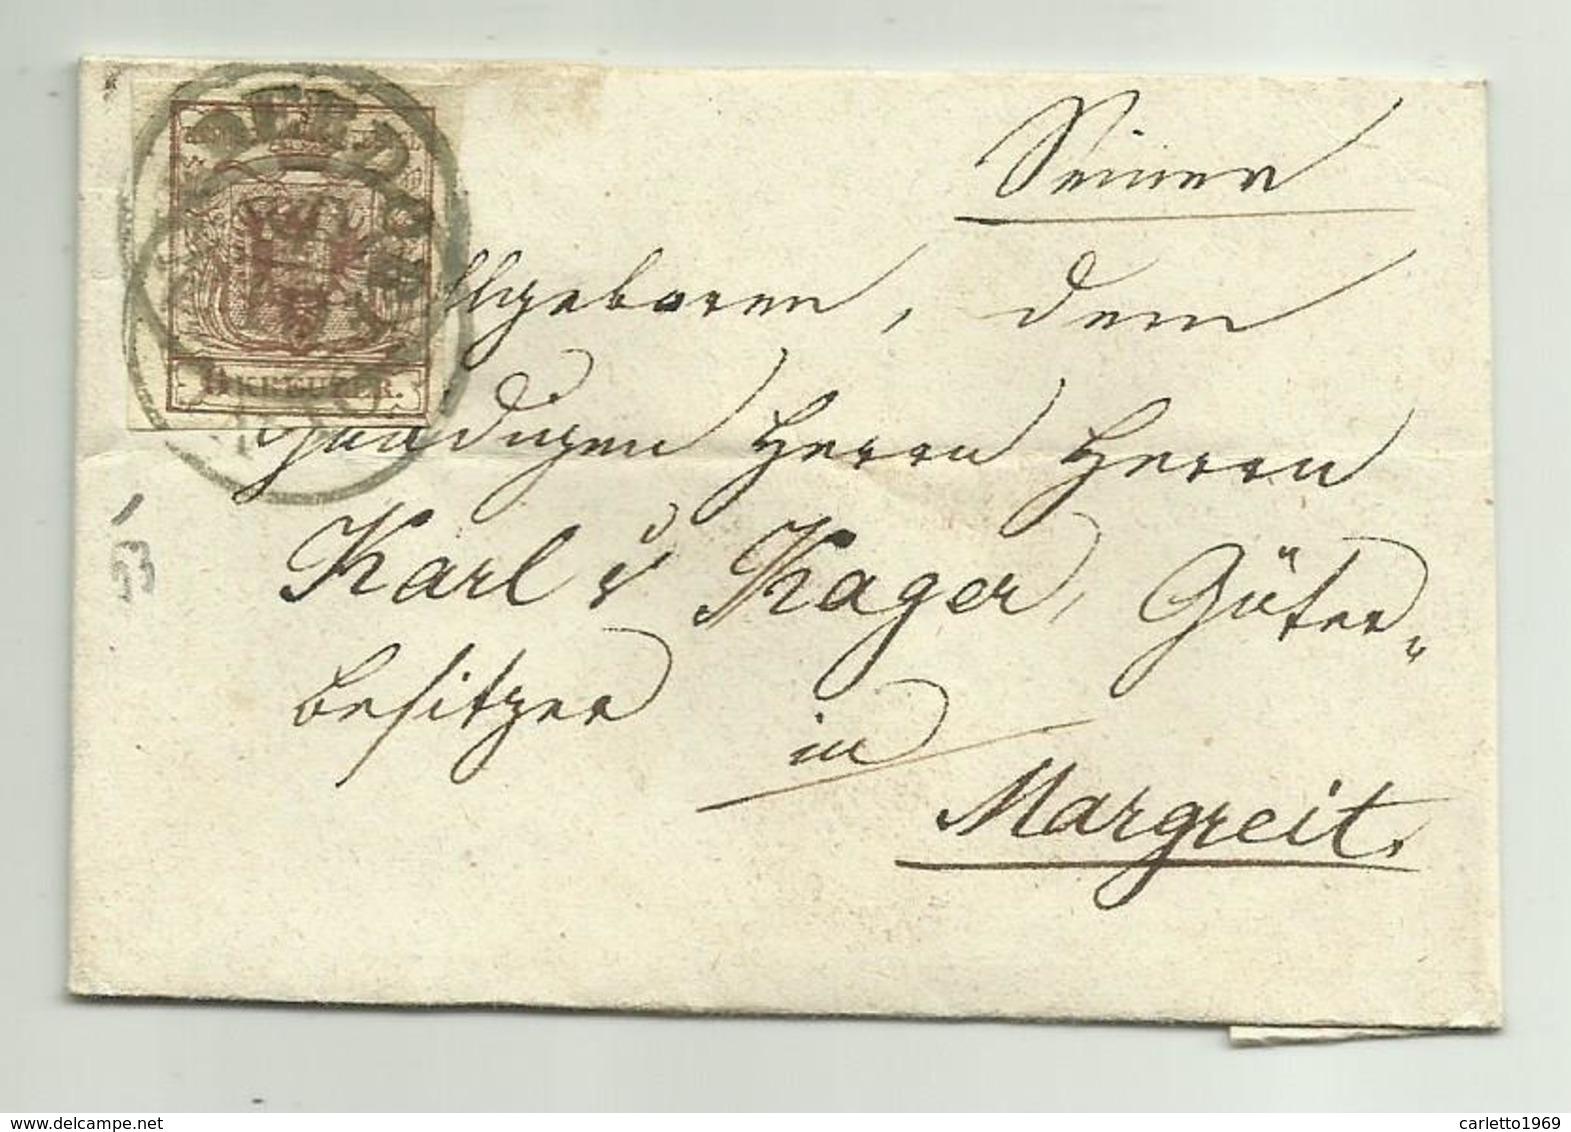 Seiner
Wohllgeboren, dem
Gnädigen Herrn Herrn
Karl v Kager, Güter„
besitzer in
Margreit.
KREUZER.
53
www.delcampe.net
carletto1969